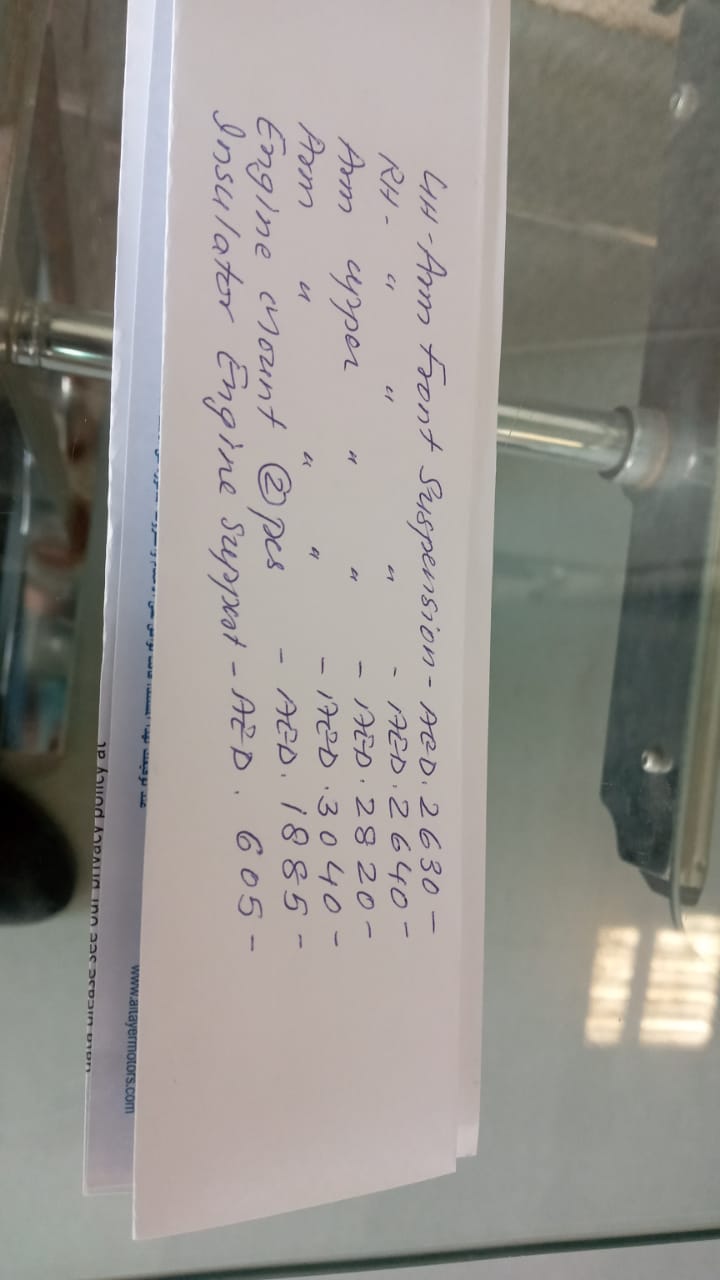 LH-Arm Front Suspension - AED. 2630 -
RH - " " " - AED. 2640 -
Arm upper " " - AED. 2820 -
Arm " " " - AED. 3040 -
Engine Mount ② pcs - AED. 1885 -
Insulator Engine Support - AED. 605 -
www.altayermotors.com
data please see our privacy policy at